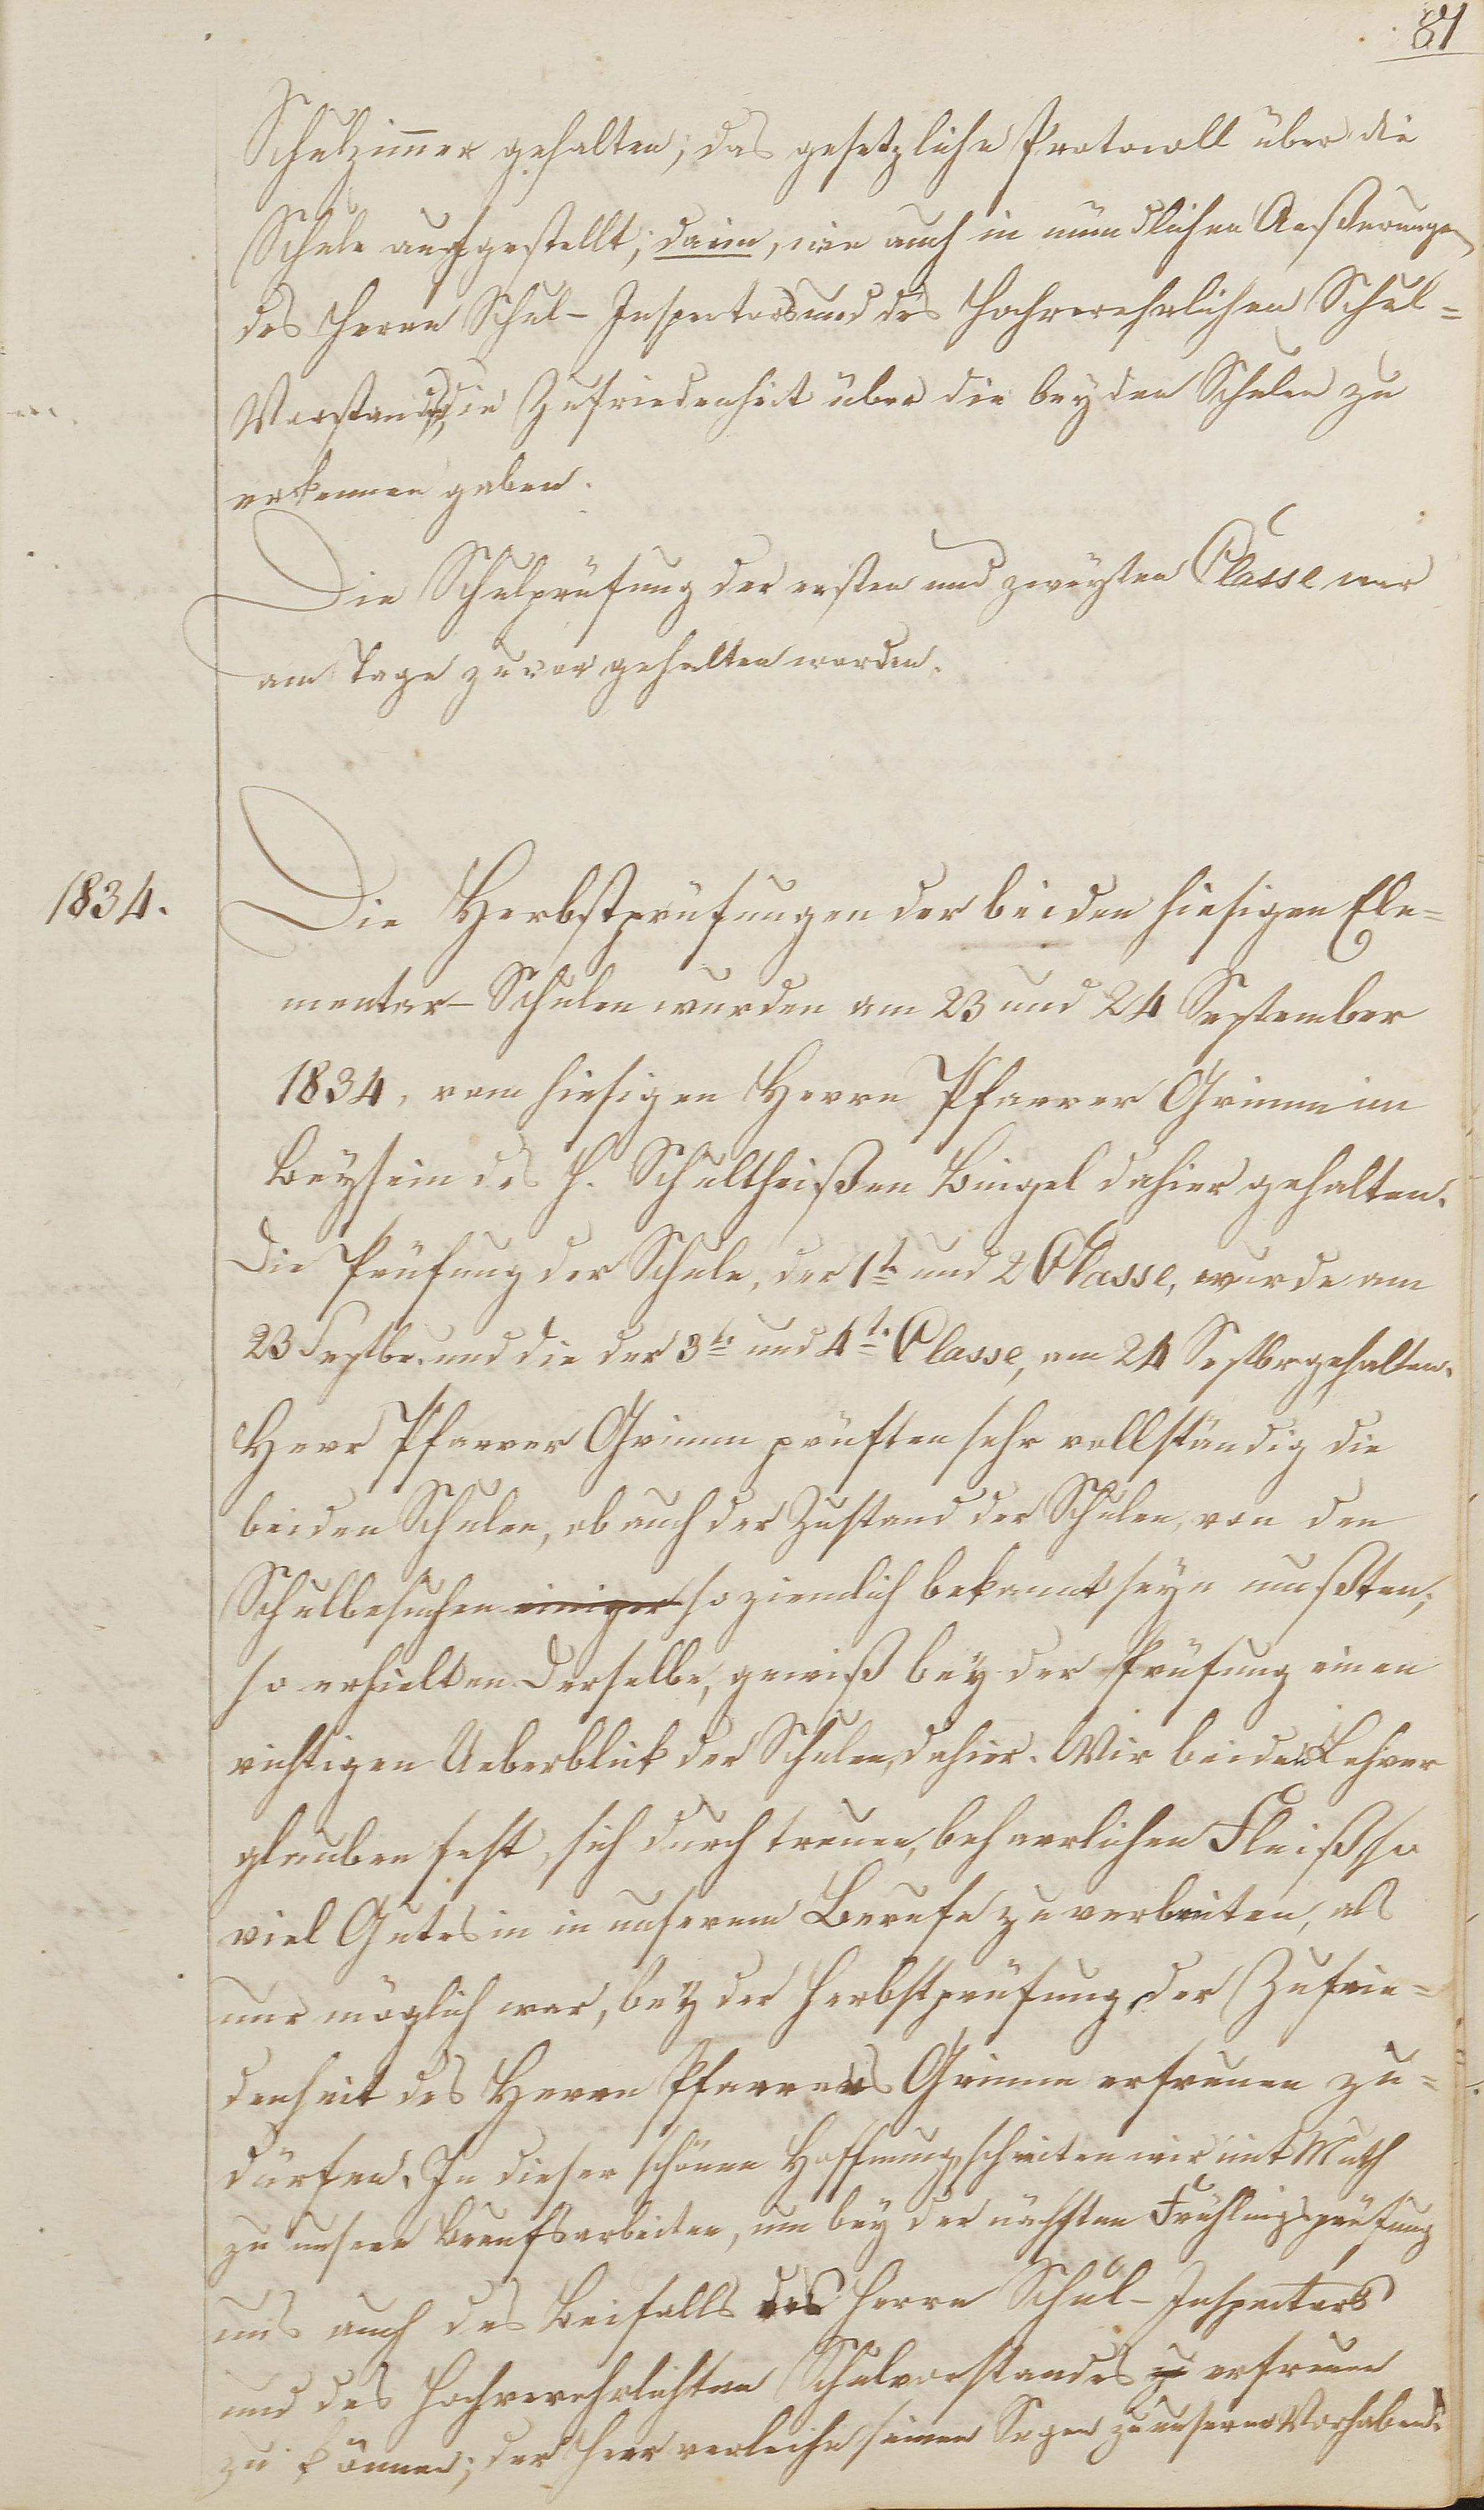 81
Schulzimmer gehalten; das gesetzliche Protocoll über die
Schule aufgestellt; darin, wie auch in mündlichen Aeußerungen
des Herrn Schul-Inspectors und des Hochverehrlichen Schul=
Vorstandes, die Zufriedenheit über die beyden Schulen zu
erkennen gaben.
Die Schulprüfung der ersten und zweyten Classe war
am Tage zuvor gehalten worden.
1834.
Die Herbstprüfungen der beiden hiesigen Ele=
mentar-Schulen wurden am 23 und 24 September
1834, vom hiesigen Herrn Pfarrer Grimm im
Beysein des H. Schultheißen Bingel dahier gehalten.
Die Prüfung der Schule, der 1t. und 2 Classe, wurde am
23 Septbr. und die der 3t. und 4t. Classe, am 24 Septbr gehalten.
Herr Pfarrer Grimm prüften sehr vollständig die
beiden Schulen, ob auch der Zustand der Schulen, von den
Schulbesuchen einiger so ziemlich bekannt seyn mußten;
so erhielten Derselbe, gewiß bey der Prüfung einen
richtigen Ueberblick der Schulen, dahier. Wir beiden Lehrer
glauben fest, sich durch treuen, beharrlichen Fleiß, so
viel Gutes in in unserem Berufe zu verbreiten, als
nur möglich war, bey der Herbstprüfung, der Zufrie=
denheit des Herrn Pfarrers Grimm erfreuen zu=
dürfen. In dieser schönen Hoffnung, schreiten wir mit Muth
zu unsern Berufsarbeiten, um bey der nächsten Frühlingsprüfung
uns auch des Beifalls des Herrn Schul-Inspectors
und des Hochverehrlichten Schulvorstandes zu erfreuen
zu können; der Herr verleihe seinen Segen zu unserm Vorhaben.